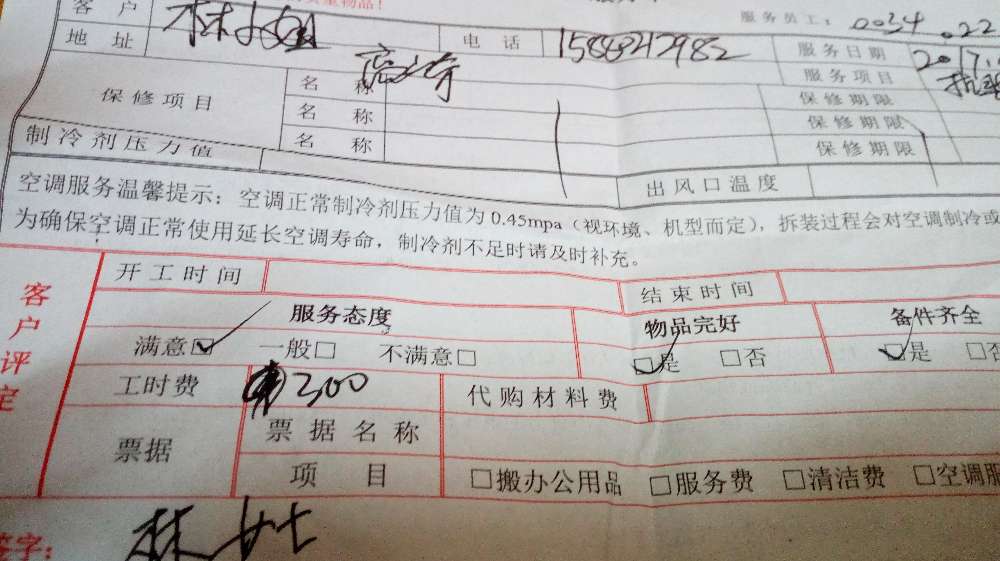 重物品!
客 户 林小姐 服务员工: 0034 .22
地 址 电 话 15848242982 服务日期 2017.
保修项目 名 称 服务项目
名 称 保修期限
名 称 保修期限
制冷剂压力值 保修期限
出风口温度
空调服务温馨提示:空调正常制冷剂压力值为0.45mpa(视环境、机型而定),拆装过程会对空调制冷或
为确保空调正常使用延长空调寿命,制冷剂不足时请及时补充。
客户评定
开工时间 结束时间
服务态度 物品完好 备件齐全
满意☑ 一般□ 不满意□ ☑是 □否 ☑是 □否
工时费 300 代购材料费
票据 票据名称
项 目 □搬办公用品 □服务费 □清洁费 □空调服
签字: 林女士